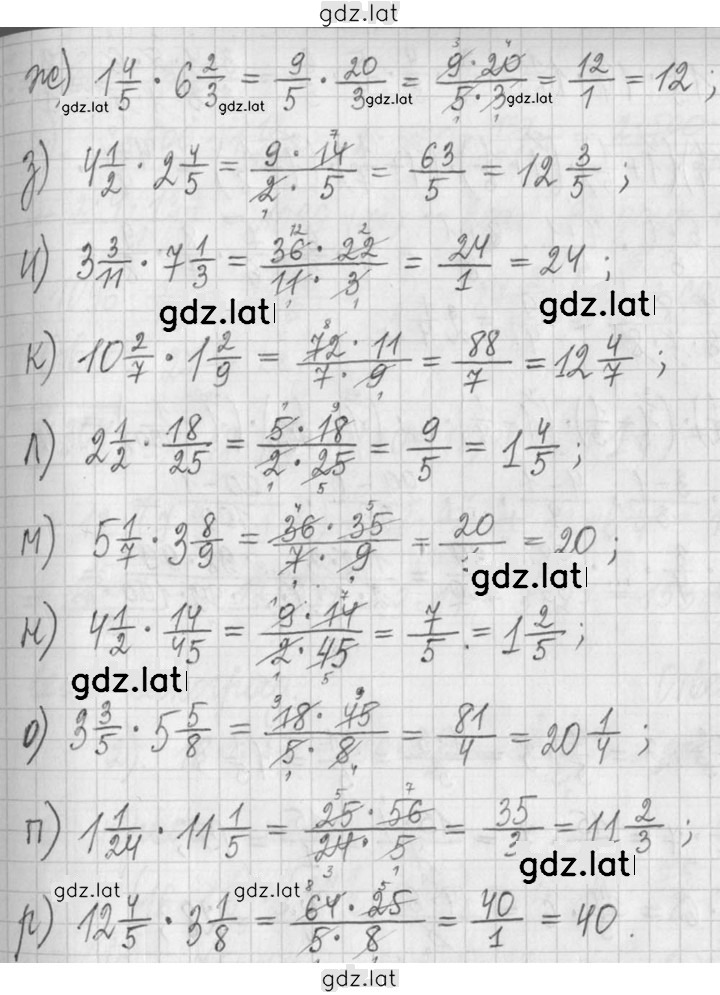 gdz.lat
ж) 1 4/5 · 6 2/3 = 9/5 · 20/3 = 9·20/5·3 = 12/1 = 12 ;
gdz.lat gdz.lat gdz.lat gdz.lat
з) 4 1/2 · 2 4/5 = 9·14/2·5 = 63/5 = 12 3/5 ;
и) 3 3/11 · 7 1/3 = 36·22/11·3 = 24/1 = 24 ;
gdz.lat gdz.lat
к) 10 2/7 · 1 2/9 = 72·11/7·9 = 88/7 = 12 4/7 ;
л) 2 1/2 · 18/25 = 5·18/2·25 = 9/5 = 1 4/5 ;
м) 5 1/7 · 3 8/9 = 36·35/7·9 = 20/ = 20 ;
gdz.lat
н) 4 1/2 · 14/45 = 9·14/2·45 = 7/5 = 1 2/5 ;
gdz.lat
о) 3 3/5 · 5 5/8 = 18·45/5·8 = 81/4 = 20 1/4 ;
п) 1 1/24 · 11 1/5 = 25·56/24·5 = 35/3 = 11 2/3 ;
gdz.lat
gdz.lat gdz.lat
р) 12 4/5 · 3 1/8 = 64·25/5·8 = 40/1 = 40.
gdz.lat